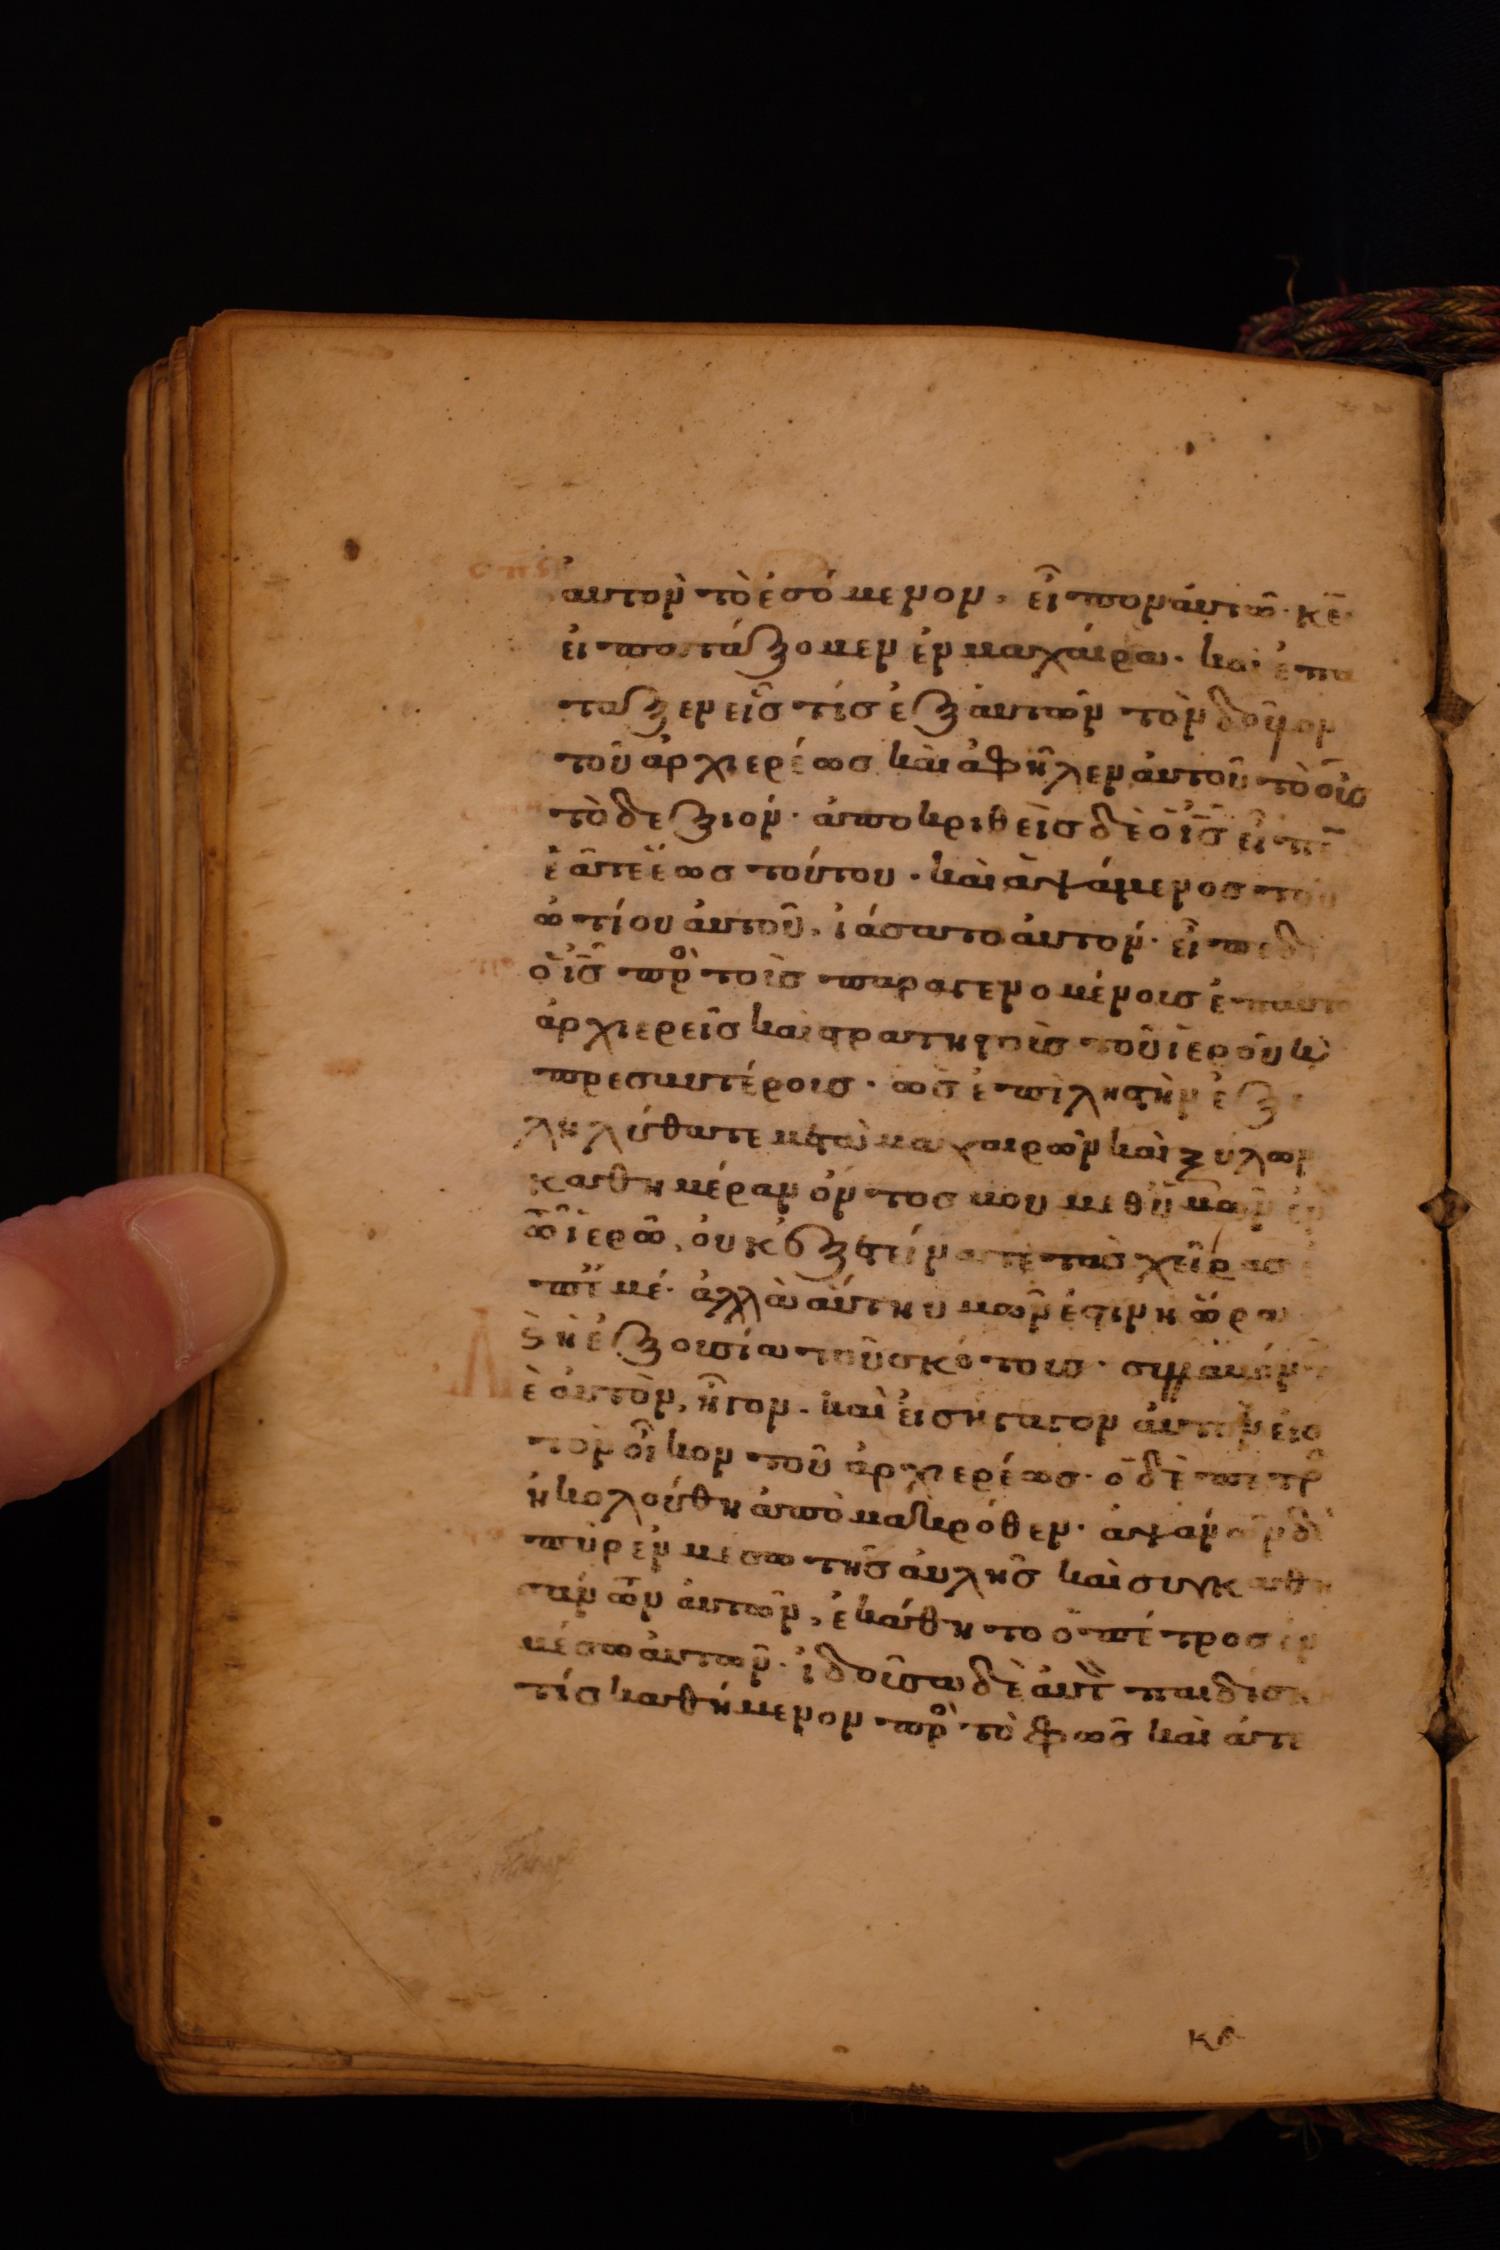 ἀυτὸν τὸ ἐσόμενον, εἶπον ἀυτῶ· κε̅
εἰ πατάξομεν ἐν μαχαίρα· καὶ ἐπα
ταξεν εἷς τίς ἐξ ἀυτῶν τὸν δοῦλον
τοῦ ἀρχιερέως καὶ ἀφῆλεν ἀυτοῦ τὸ οὖς
τὸ δεξιόν· ἀποκριθεὶς δὲ ὁ ἰς̅ εἶπε̅
ἐᾶτε ἕως τούτου· καὶ ἁψάμενος τοῦ
ὠτίου ἀυτοῦ, ἰάσατο ἀυτόν· εἶπε δὲ
ὁ ἰς̅ πρὸ τοὺς παραγενομένους ἐπ αυτὸ
ἀρχιερεῖς καὶ στρατηγοὺς τοῦ ἱεροῦ κὶ
πρεσβυτέρους· ὡς ἐπὶ ληστὴν ἐξε
ληλύθατε μετὰ μαχαιρῶν καὶ ξύλων
καθημέραν ὄντος μου μεθ ὑμῶν ἐν
τῶ ἱερῶ, ὀυκ ἐξετείνατε τὰς χεῖρας ἐ
π ἐμέ· ἀλλὰ ἁύτη υμῶν ἐστιν ἡ ὥρα
κὶ ἡ ἐξουσία τοῦ σκότους· συλλαβόντ
ὲ ἀυτὸν, ἦγον· καὶ εἰσήγαγον ἀυτὸν εἰς
τὸν οἶκον τοῦ ἀρχιερέως· ὁ δὲ πετρο
ἠκολούθη ἀπὸ μακρόθεν· ἁψάντων δὲ
πῦρ ἐν μεσω τῆς ἀυλῆς καὶ συγκαθη
σάντων ἀυτῶν, ἐκάθητο ὁ πέτρος ἐν
μέσω ἀυτῶν· ἰδοῦσα δὲ ἀυτὸν παιδίσκη
τίς καθήμενον πρὸ τὸ φῶς καὶ ἀτε